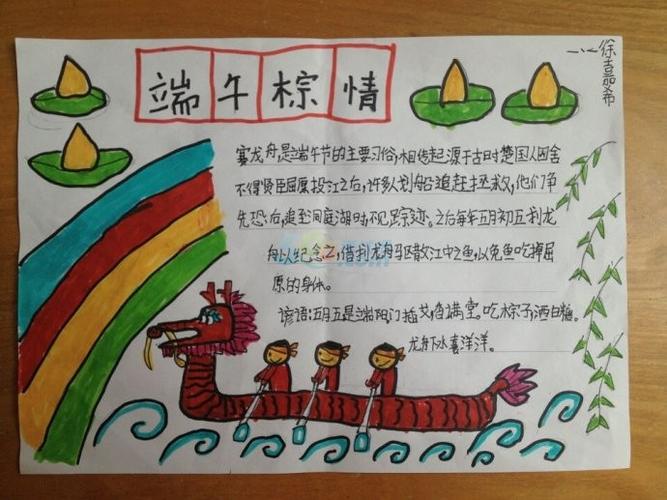 端午棕情
一、一徐嘉希
赛龙舟,是端午节的主要习俗,相传起源于古时楚国人因舍
不得贤臣屈原投江之后,许多人划船追赶拯救,他们争
先恐后,追至洞庭湖时,不见踪迹。之后每年五月初五划龙
舟以纪念之,借划龙舟区散江中之鱼,以免鱼吃掉屈
原的身体。
谚语:五月五是端阳门插艾,香满堂。吃棕子,洒白糖。
龙船下水喜洋洋。